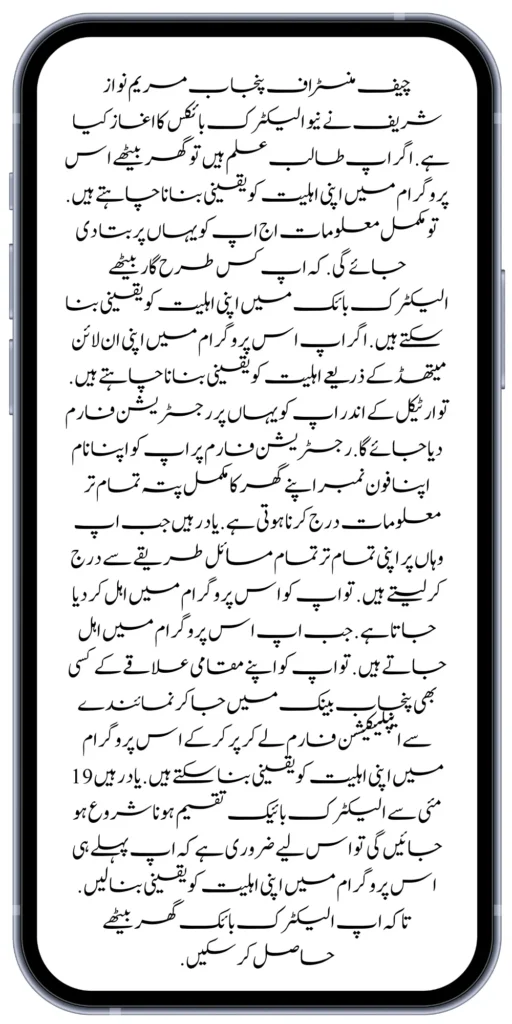 چیف منسٹر اف پنجاب مریم نواز
شریف نے نیو الیکٹرک بائکس کا اغاز کیا
ہے. اگر اپ طالب علم ہیں تو گھر بیٹھے اس
پروگرام میں اپنی اہلیت کو یقینی بنانا چاہتے ہیں.
تو مکمل معلومات اج اپ کو یہاں پر بتا دی
جائے گی. کہ اپ کس طرح گار بیٹھے
الیکٹرک بائک میں اپنی اہلیت کو یقینی بنا
سکتے ہیں. اگر اپ اس پروگرام میں اپنی ان لائن
میتھڈ کے ذریعے اہلیت کو یقینی بنانا چاہتے ہیں.
تو ارٹیکل کے اندر اپ کو یہاں پر رجسٹریشن فارم
دیا جائے گا. رجسٹریشن فارم پر اپ کو اپنا نام
اپنا فون نمبر اپنے گھر کا مکمل پتہ تمام تر
معلومات درج کرنا ہوتی ہے. یاد رہیں جب اپ
وہاں پر اپنی تمام تر تمام مسائل طریقے سے درج
کر لیتے ہیں. تو اپ کو اس پروگرام میں اہل کر دیا
جاتا ہے. جب اپ اس پروگرام میں اہل
جاتے ہیں. تو اپ کو اپنے مقامی علاقے کے کسی
بھی پنجاب بینک میں جا کر نمائندے
سے اپلیکیشن فارم لے کر پر کر کے اس پروگرام
میں اپنی اہلیت کو یقینی بنا سکتے ہیں. یاد رہیں 19
مئی سے الیکٹرک بائیک تقسیم ہونا شروع ہو
جائیں گی تو اس لیے ضروری ہے کہ اپ پہلے ہی
اس پروگرام میں اپنی اہلیت کو یقینی بنا لیں.
تاکہ اپ الیکٹرک بائک گھر بیٹھے
حاصل کر سکیں.